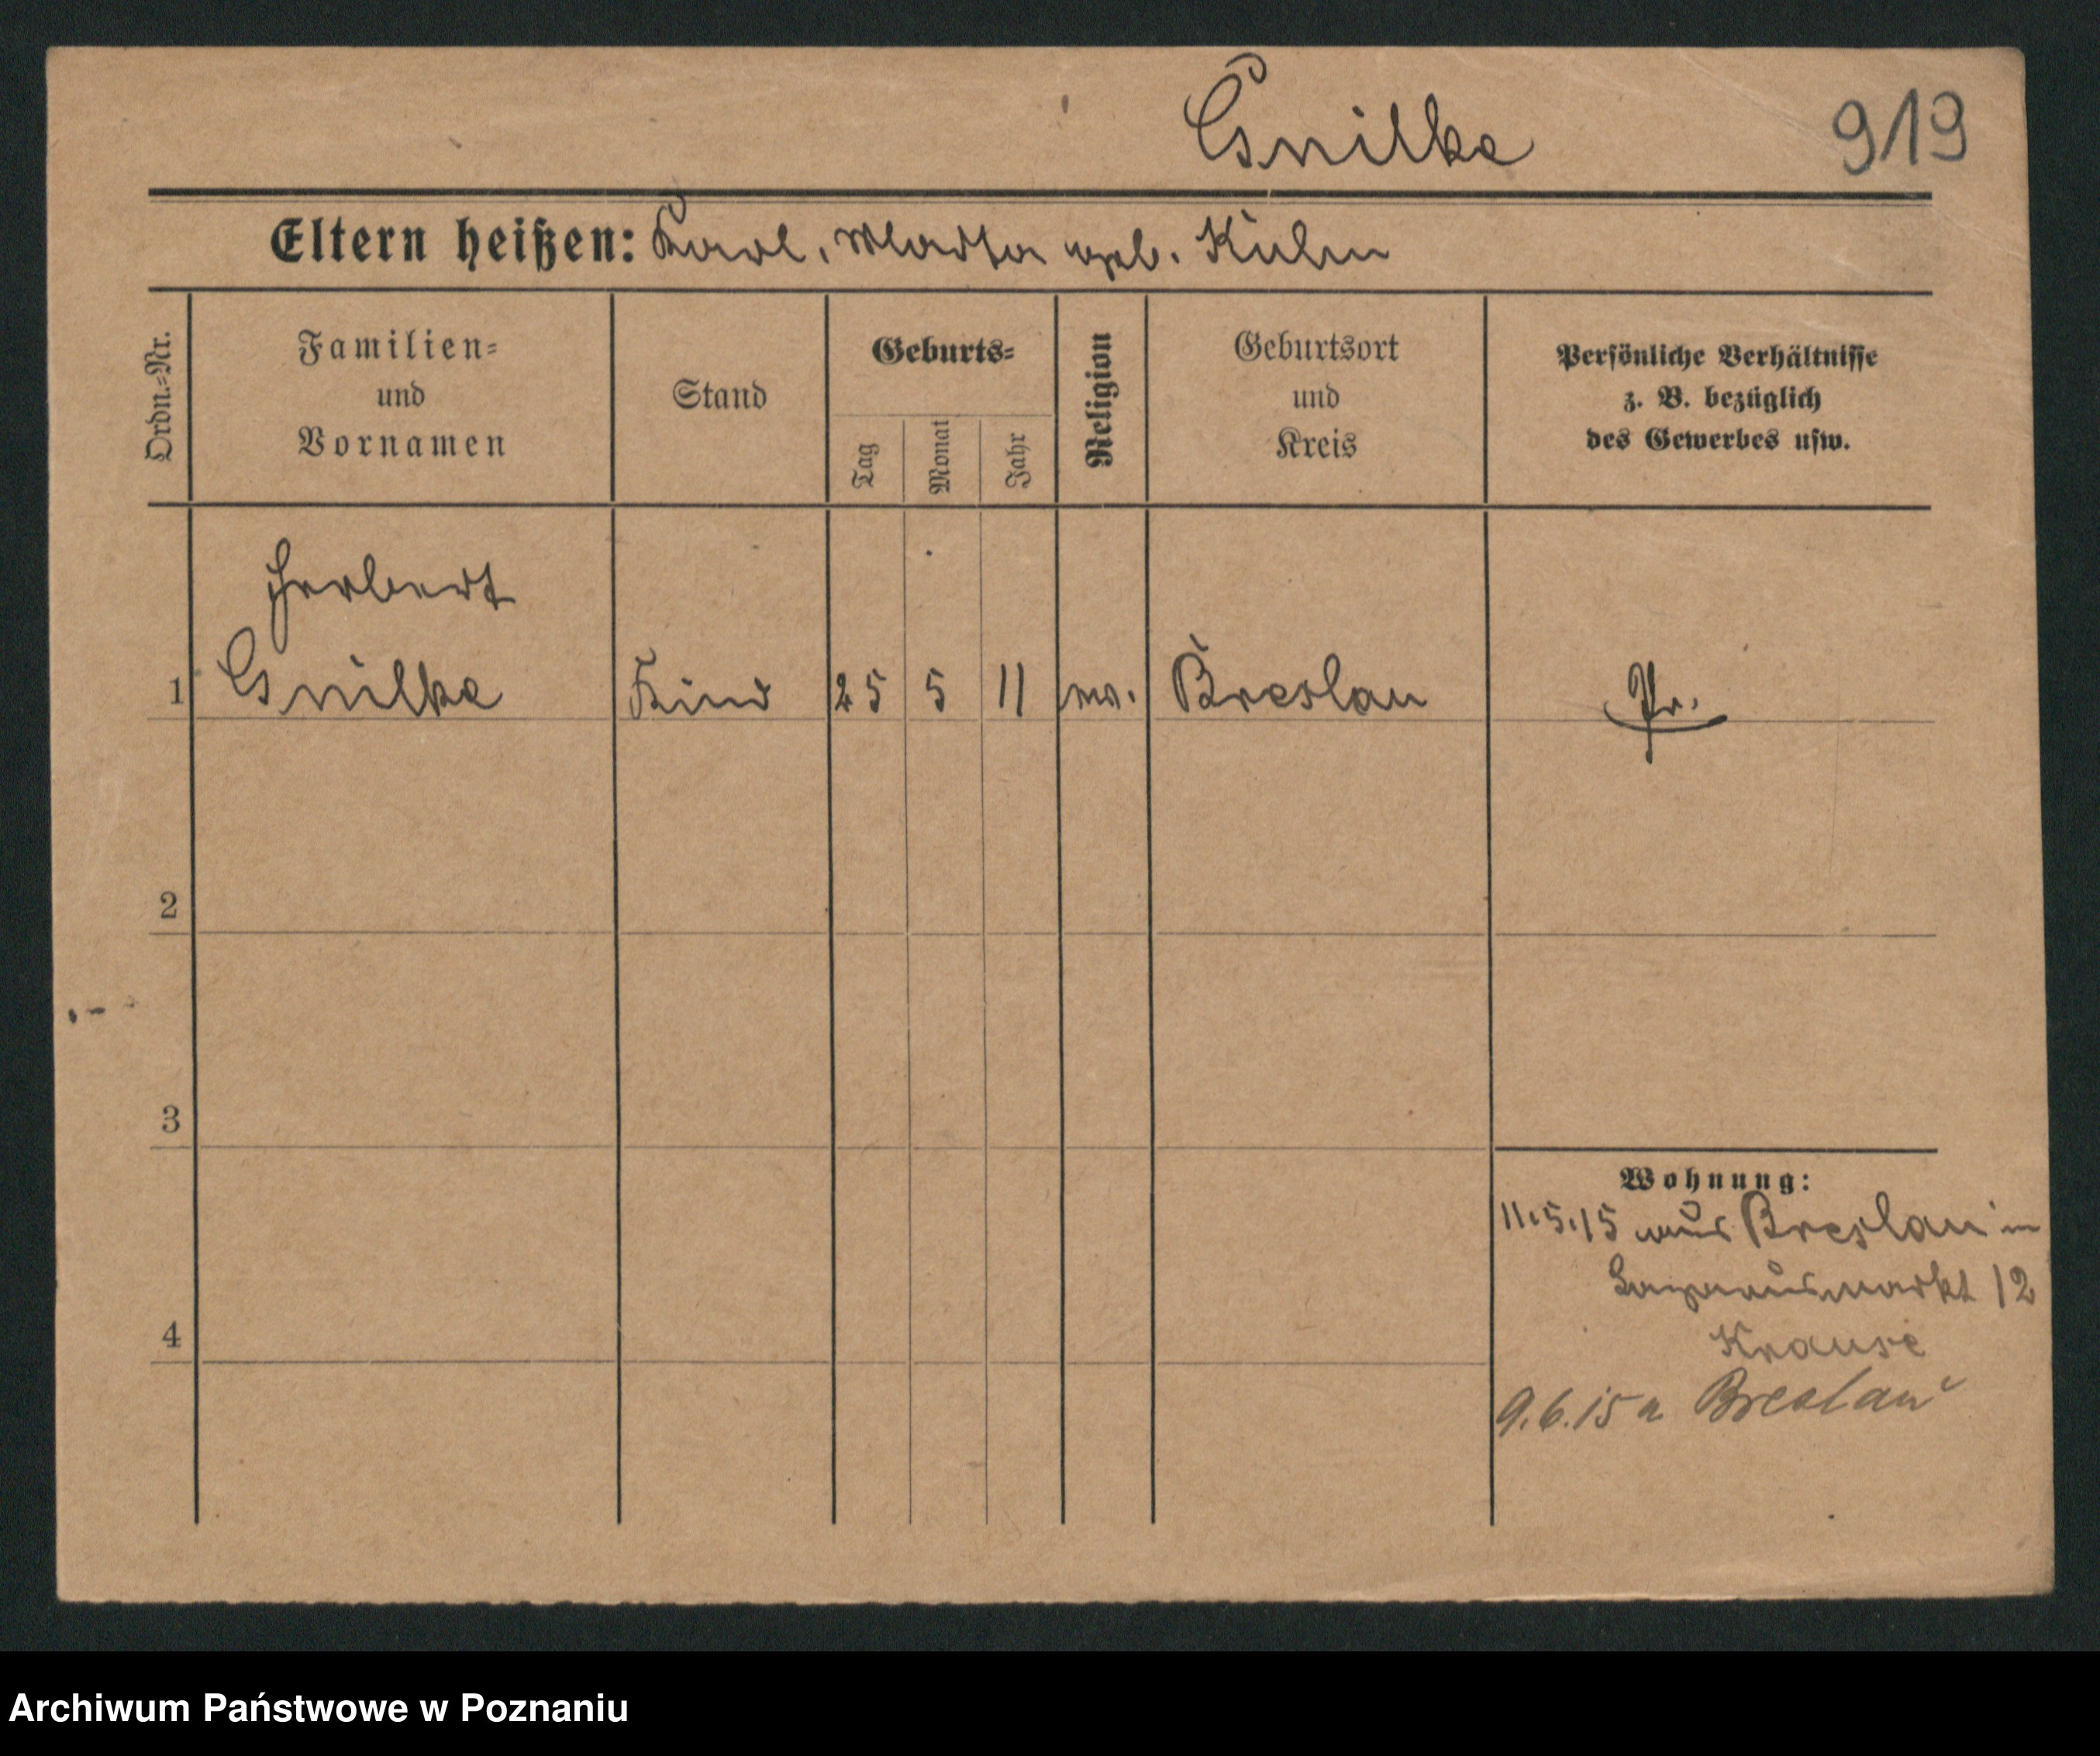 Gnilka
919
Eltern heißen: Karl, Martha geb. Kuhn
Ordn.-Nr.
Familien-
und
Vornamen
Stand
Geburts-
Tag
Monat
Jahr
Religion
Geburtsort
und
Kreis
Persönliche Verhältnisse
z. B. bezüglich
des Gewerbes usw.
Herbert
1 Gnilka Kind 25 5 11 Breslau Pr.
2
3
4
Wohnung:
11.5.15 aus Breslau
Lazarusmarkt 12
Krause
9.6.15 n Breslau
Archiwum Państwowe w Poznaniu